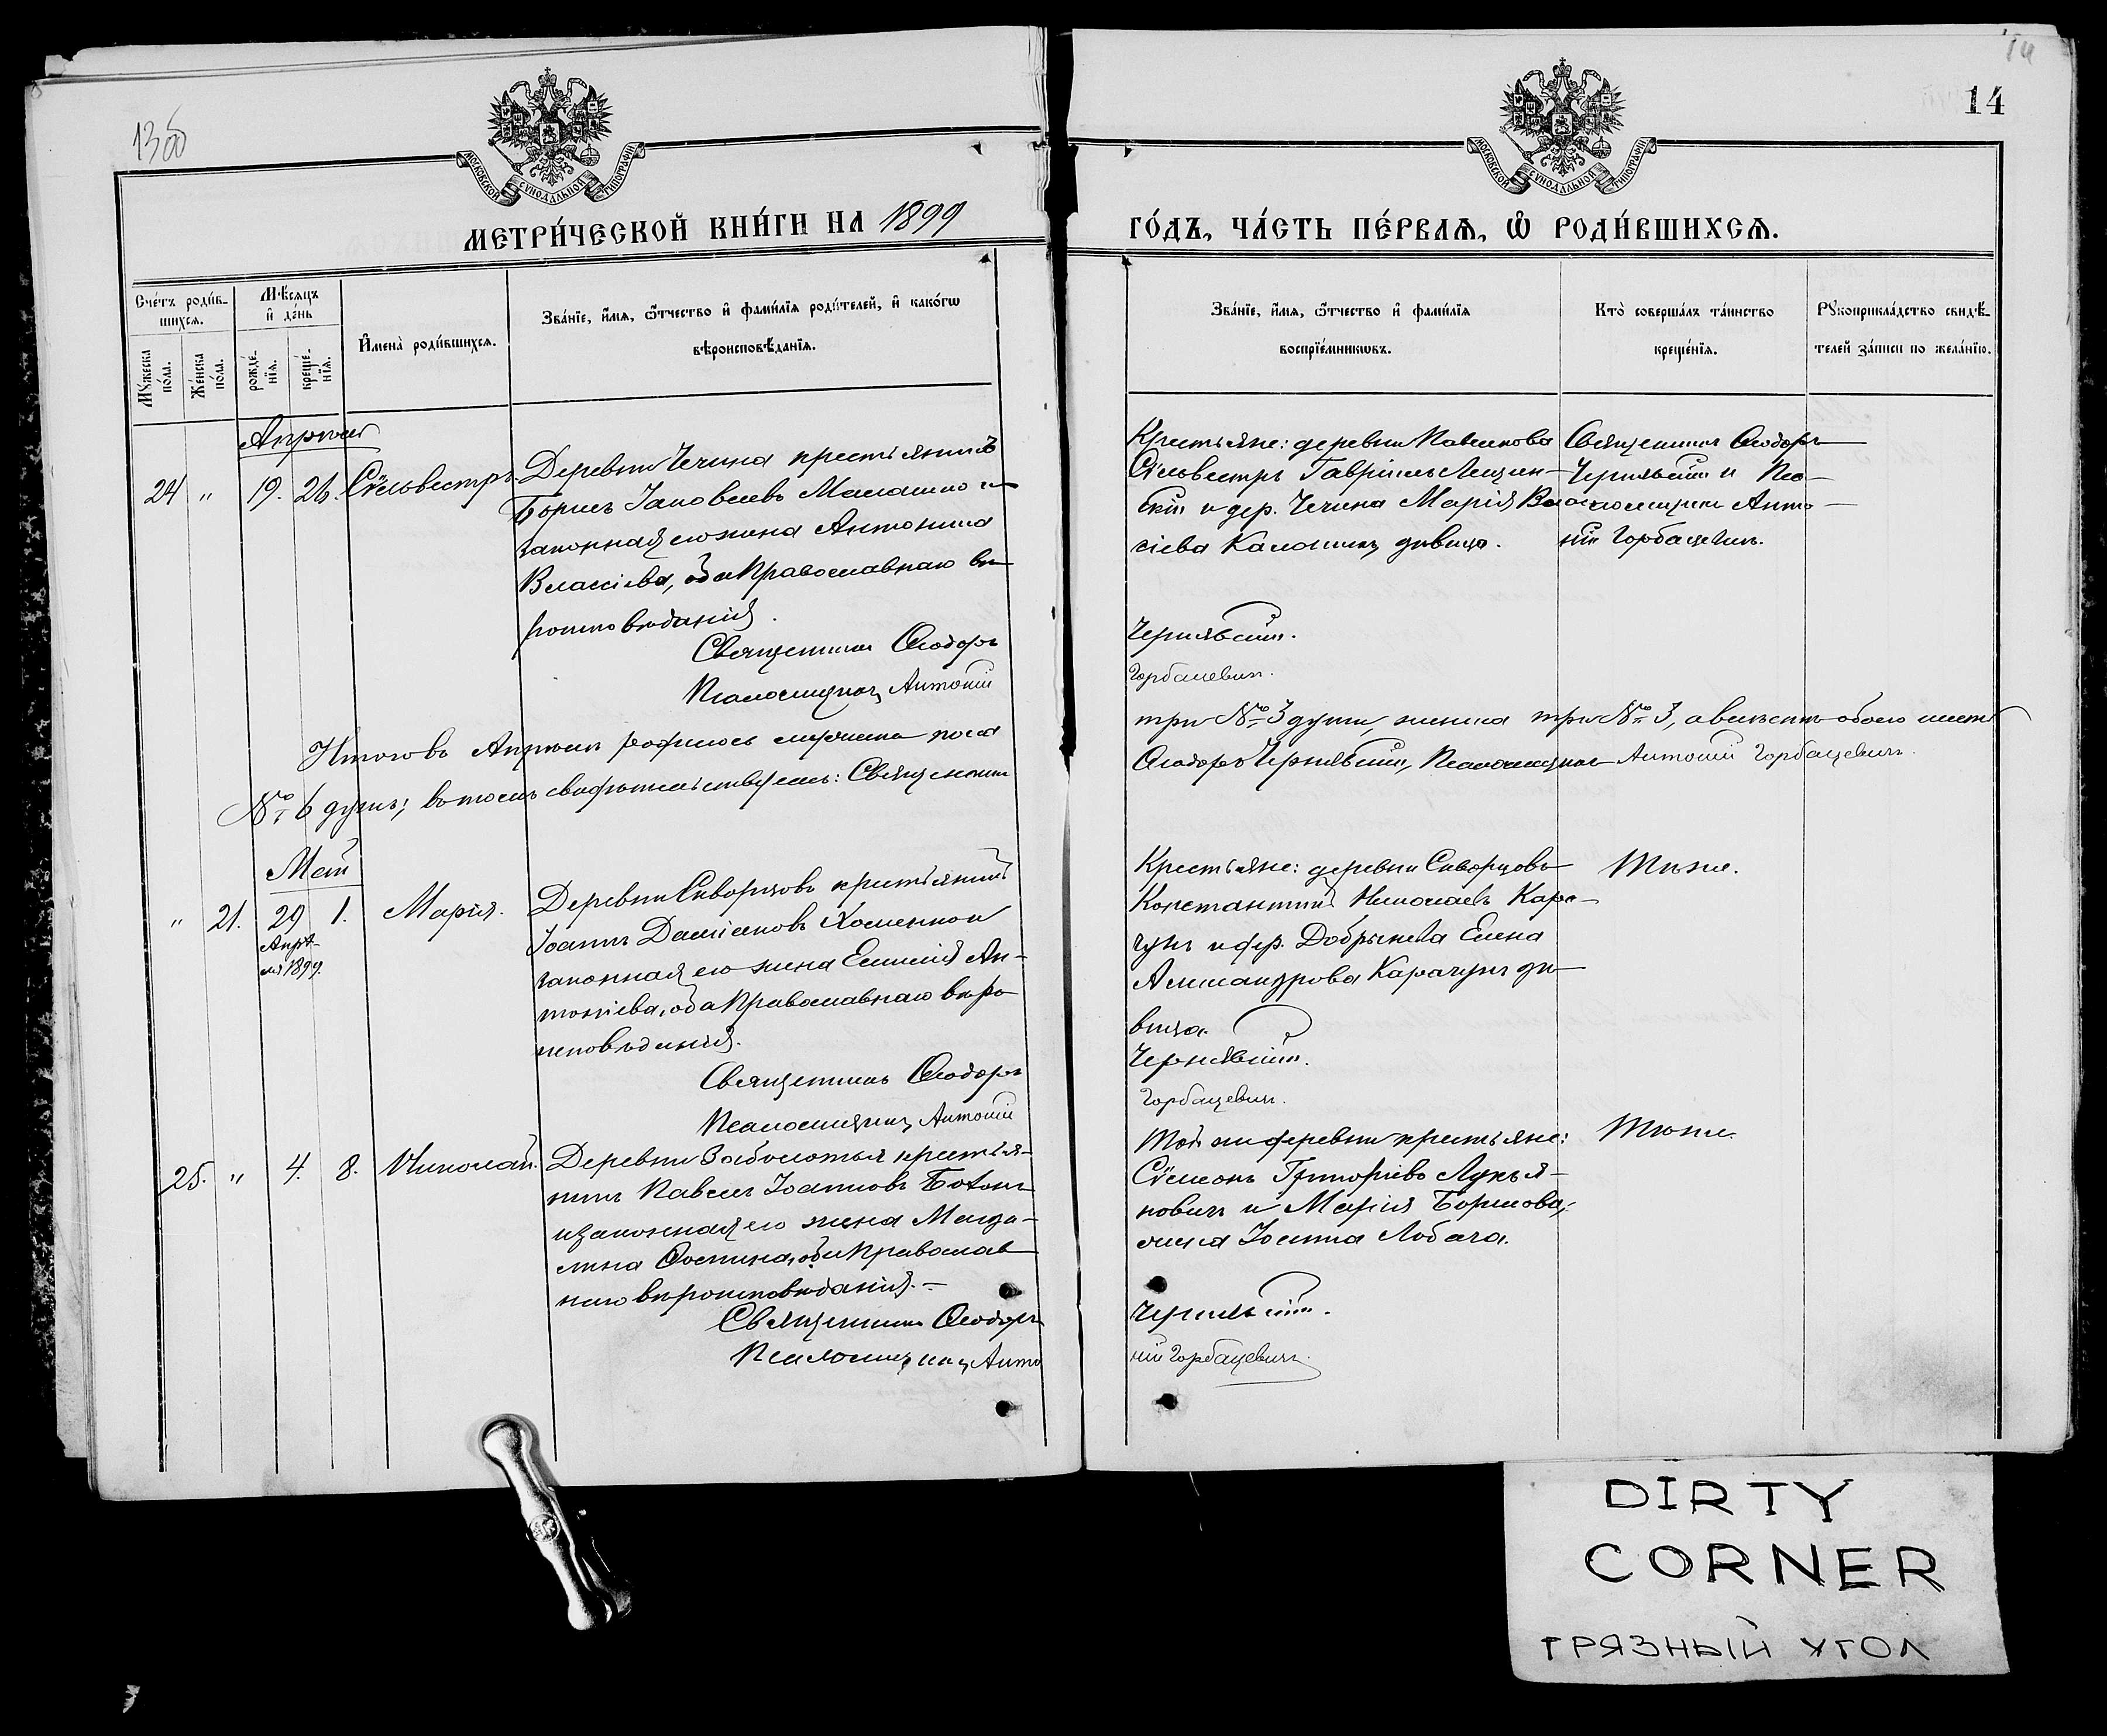 13об
14
14
МОСКОВСКОЙ СѴНОДАЛЬНОЙ ТИПОГРАФІИ
МОСКОВСКОЙ СѴНОДАЛЬНОЙ ТИПОГРАФІИ
МЕТРИ́ЧЕСКОЙ КНИ́ГИ НА 1899
ГО́ДЪ, ЧА́СТЬ ПЕ́РВАѦ, Ѡ҆ РОДИ́ВШИХСѦ.
Сче́тъ роди́в-
шихсѧ.
Мꙋ́жеска
по́ла.
Же́нска
по́ла.
Мѣ́сяцъ
и҆ де́нь
рожде́-
нїѧ.
креще́-
нїѧ.
И҆мена̀ роди́вшихсѧ.
Зва́нїе, и҆́мѧ, ѻ҆́тчество и҆ фами́лїѧ роди́телей, и҆ како́гѡ
вѣроисповѣ́данїѧ.
Зва́нїе, и҆́мѧ, ѻ҆́тчество и҆ фами́лїѧ
воспрїе́мникѡвъ.
Кто̀ соверша́лъ та́инство
креще́нїѧ.
Рꙋкоприкла́дство свидѣ́-
телей за́писи по жела́нїю.
Апрѣль
24 " 19. 26. Сѵльвестръ.
Деревни Чечина крестьянинъ
Борисъ Іаковлевъ Малашко и
законная его жена Антонина
Власіева, оба Православнаго вѣ-
роисповѣданія.
Священникъ Ѳеодоръ
Псаломщикъ Антоній
Крестьяне: деревни
Сѵльвестръ Гавріилъ
скій и дер. Чечина Марія Вла-
сіева девица.
Священникъ Ѳеодоръ
Чернявскій и Пса-
ломщикъ Анто-
ній Горбацевичъ.
Чернявскій.
Горбацевичъ.
Итого въ Апрѣлѣ родилось мужеска пола
три № 3 души, женска три № 3, а вмѣстѣ обоего шесть
№ 6 душъ; въ томъ свидѣтельствуемъ: Священникъ
Ѳеодоръ Чернявскій, Псаломщикъ Антоній Горбацевичъ.
Май
" 21. 29 1. Марія.
Апрѣ-
ля 1899.
Деревни Скворцовъ крестьянинъ
Іоаннъ Даміановъ Хоменокъ и
законная его жена Ан-
тоніева, оба Православнаго вѣро
исповѣданія.
Священникъ Ѳеодоръ
Псаломщикъ Антоній
Крестьяне: деревни Скворцовъ
Константинъ Николаевъ Кара-
чунъ и дер. Добрынева Елена
Александрова Карачунъ дѣ-
вица.
Чернявскій.
Горбацевичъ.
Тѣже.
25. " 4. 8. Николай.
Деревни Заболотья крестья-
нинъ Павелъ Іоанновъ
и законная его жена Магда-
лина оба Православ
наго вѣроисповѣданія.-
Священникъ Ѳеодоръ
Псаломщикъ Анто
Той же деревни крестьяне:
Сѵмеонъ Григоріевъ Лукья-
новичъ и Марія Борисова,
жена Іоанна Лобача.
Чернявскій.
ній Горбацевичъ.
Тѣже.
DIRTY
CORNER
ГРЯЗНЫЙ УГОЛ